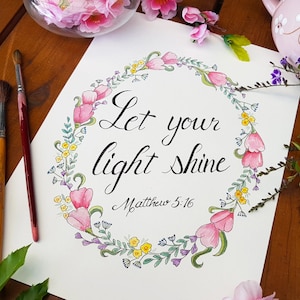 Let your
light shine
Matthew 5:16